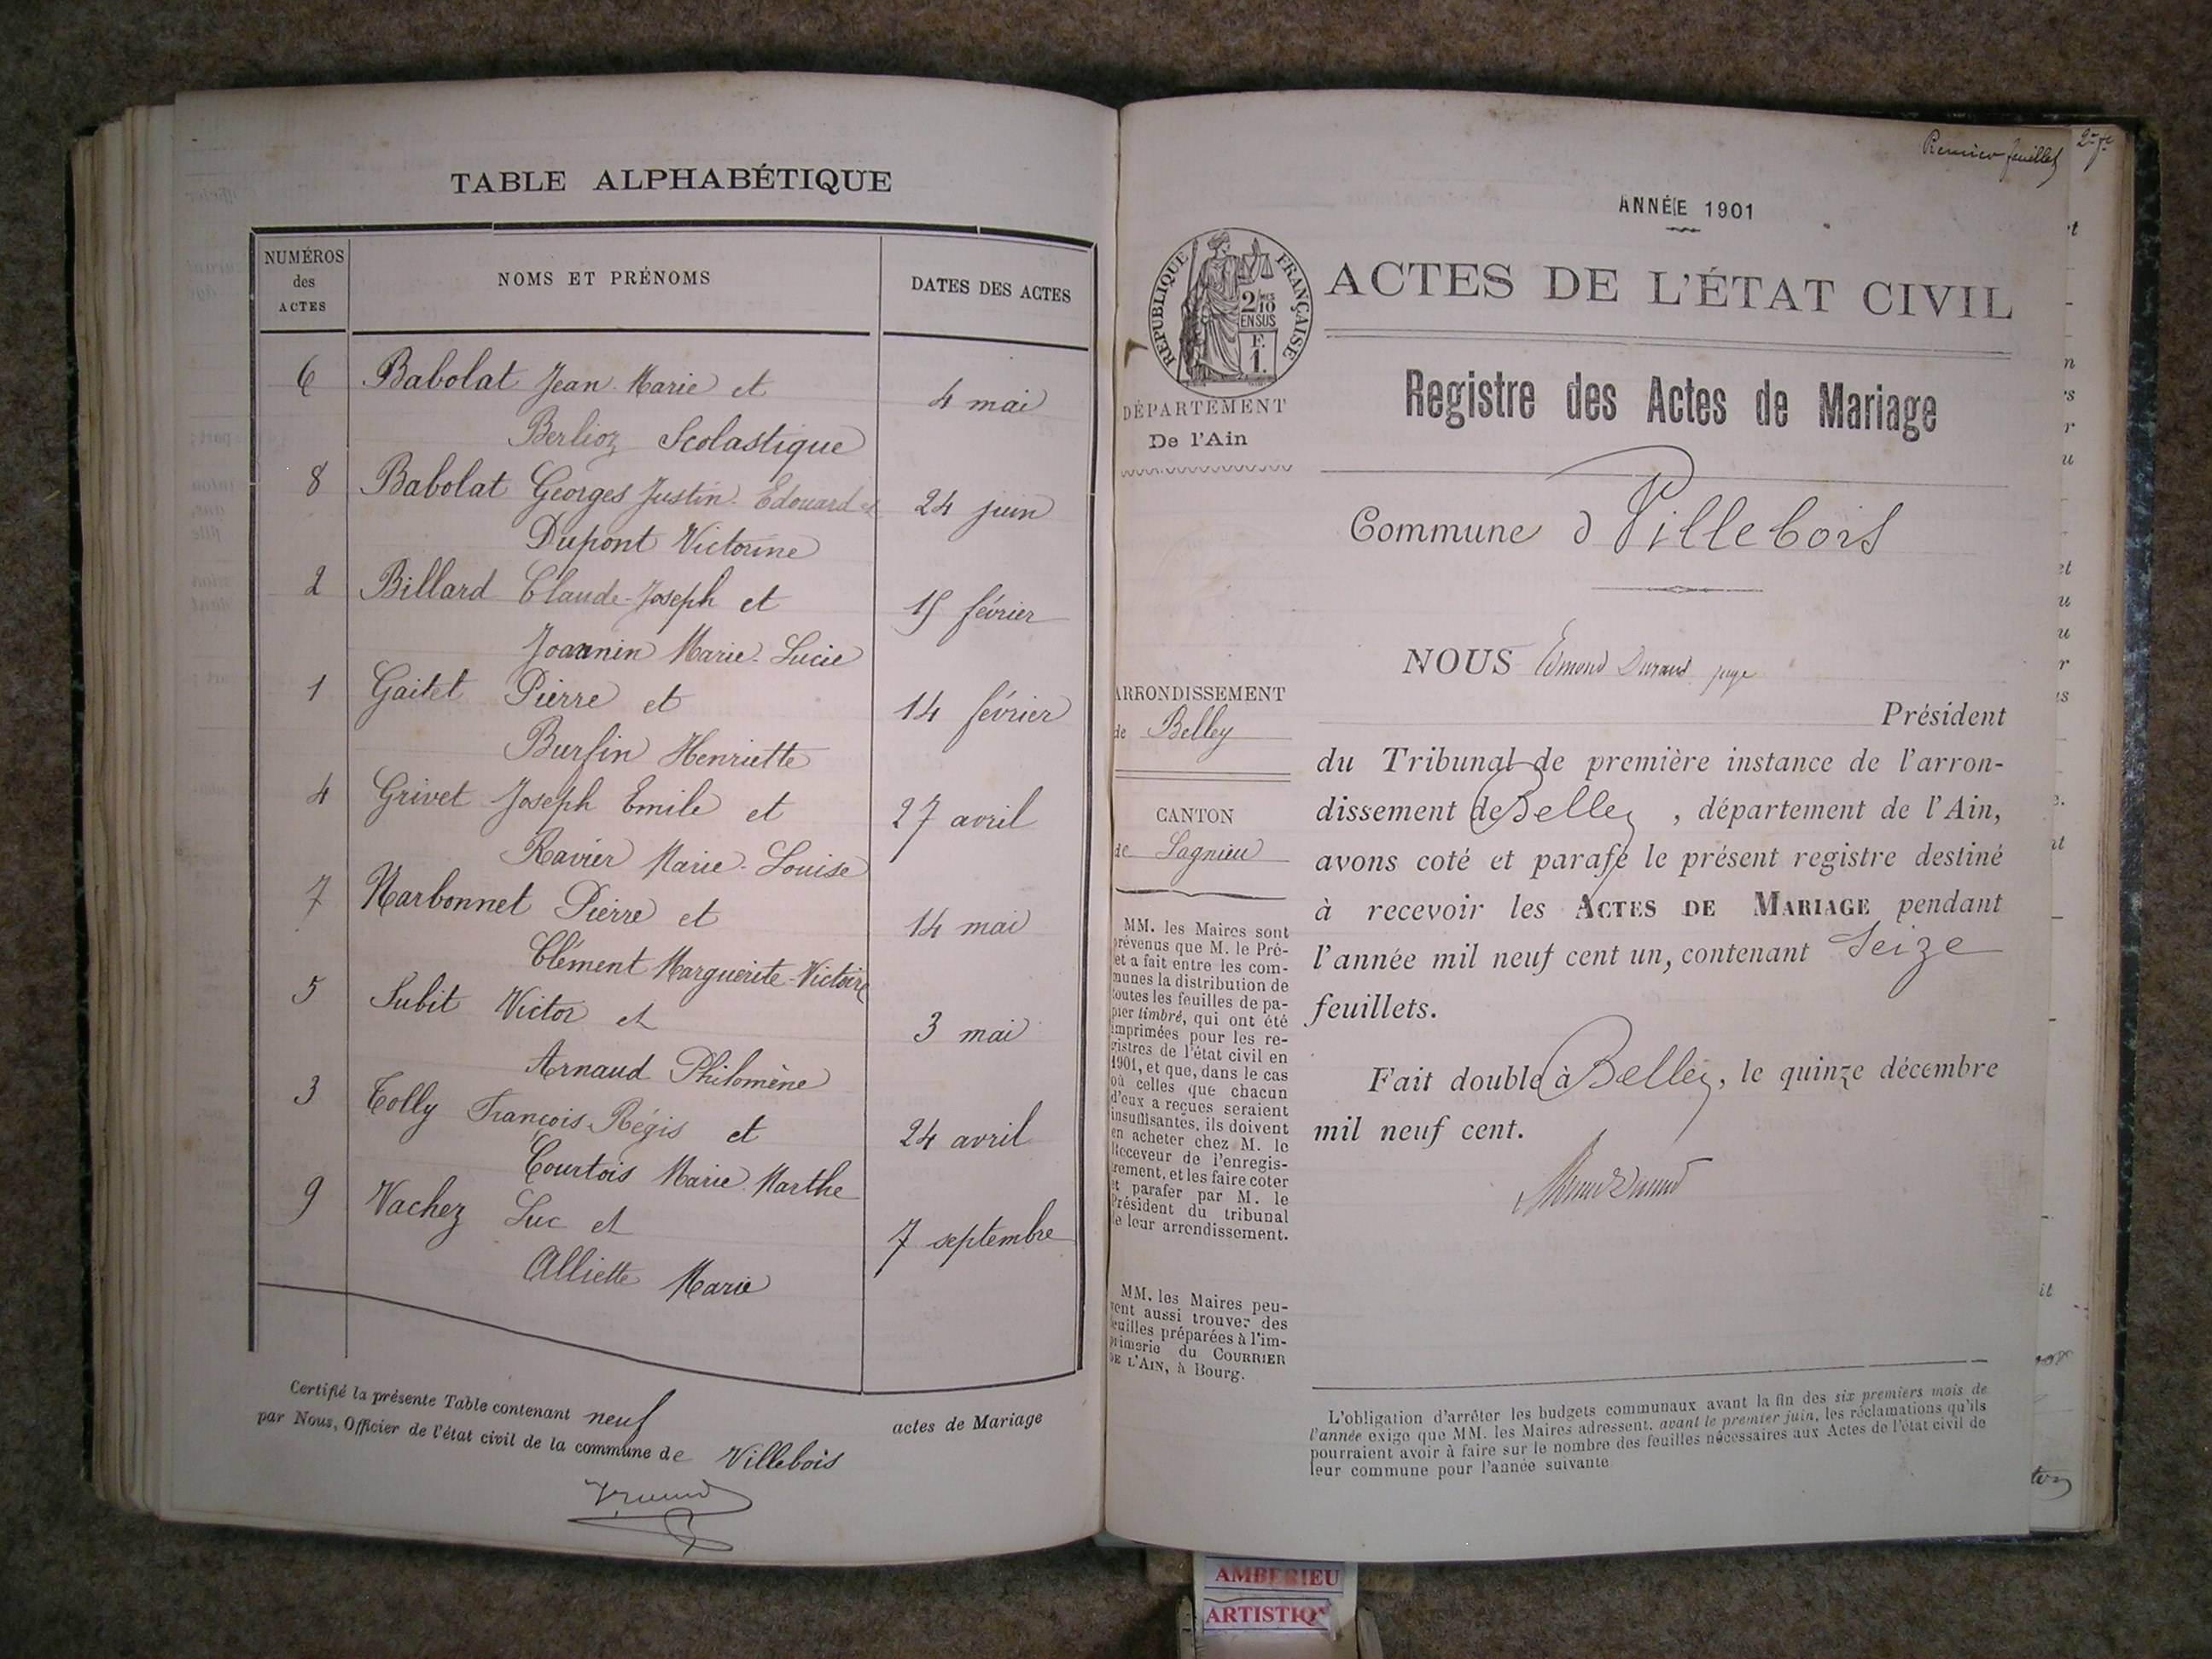 TABLE ALPHABÉTIQUE
NUMÉROS
des
ACTES
NOMS ET PRÉNOMS
DATES DES ACTES
6 Babolat Jean Marie et
4 mai
Berlioz Scolastique
8 Babolat Georges Justin Edouard et
24 juin
Dupont Victorine
2 Billard Claude-Joseph et
15 février
Joannin Marie-Lucie
1 Gaitet Pierre et
14 février
Burfin Henriette
4 Grivet Joseph Emile et
27 avril
Ravier Marie-Louise
7 Narbonnet Pierre et
14 mai
Clément Marguerite-Victoire
5 Subit Victor et
3 mai
Arnaud Philomène
3 Tolly François-Régis et
24 avril
Courtois Marie Marthe
9 Vachez Luc et
7 septembre
Alliette Marie
Certifié la présente Table contenant neuf actes de Mariage
par Nous, Officier de l'état civil de la commune de Villebois
Premier feuillet
2me ft
ANNÉE 1901
RÉPUBLIQUE FRANÇAISE
2/10 MES
EN SUS
F.
1.
ACTES DE L'ÉTAT CIVIL
DÉPARTEMENT
De l'Ain
Registre des Actes de Mariage
Commune d Villebois
NOUS Edmond Durand juge
Président
ARRONDISSEMENT
de Belley
CANTON
de Lagnieu
du Tribunal de première instance de l'arron-
dissement de Belley, département de l'Ain,
avons coté et parafé le présent registre destiné
à recevoir les ACTES DE MARIAGE pendant
l'année mil neuf cent un, contenant seize
feuillets.
Fait double à Belley, le quinze décembre
mil neuf cent.
MM. les Maires sont
prévenus que M. le Pré-
fet a fait entre les com-
munes la distribution de
toutes les feuilles de pa-
pier timbré, qui ont été
imprimées pour les re-
gistres de l'état civil en
1901, et que, dans le cas
où celles que chacun
d'eux a reçues seraient
insuffisantes, ils doivent
en acheter chez M. le
Receveur de l'enregis-
trement, et les faire coter
et parafer par M. le
Président du tribunal
de leur arrondissement.
MM. les Maires peu-
vent aussi trouver des
feuilles préparées à l'im-
primerie du COURRIER
DE L'AIN, à Bourg.
L'obligation d'arrêter les budgets communaux avant la fin des six premiers mois de
l'année exige que MM. les Maires adressent, avant le premier juin, les réclamations qu'ils
pourraient avoir à faire sur le nombre des feuilles nécessaires aux Actes de l'état civil de
leur commune pour l'année suivante.
AMBERIEU
ARTISTIQ